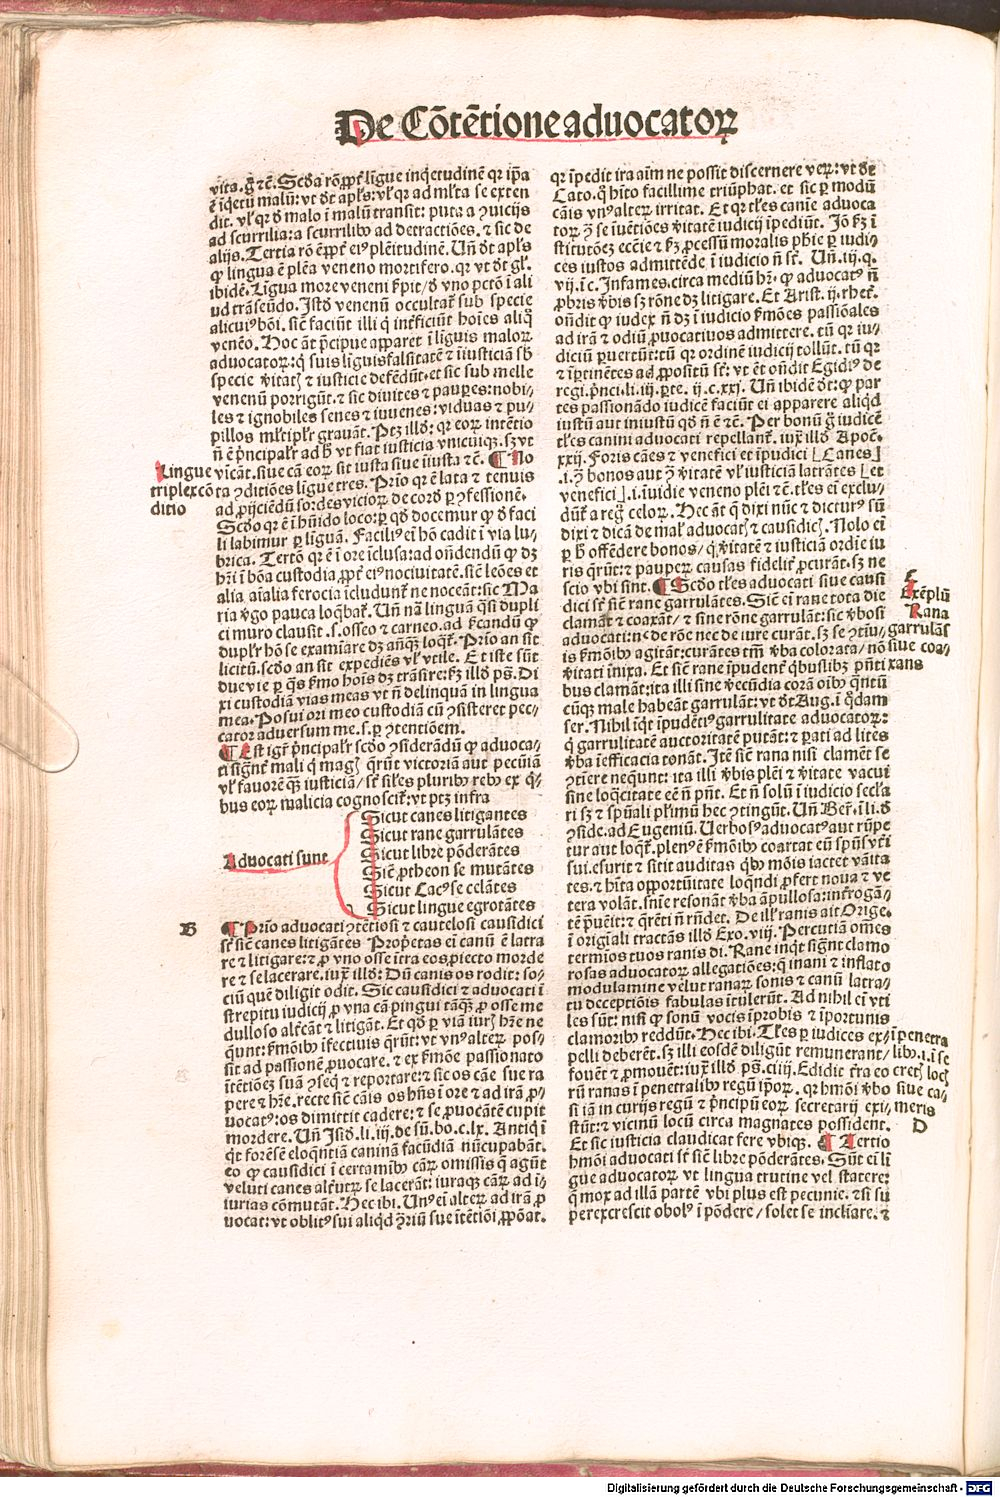 De Cõtẽtione aduocatoꝝ
vita. ḡ ꝛc̃. Scd̃a rõ ꝓpt̃ lĩgue inq̇etudinẽ qꝛ ip̃a
ẽ iq̇etũ malũ: vt dt̃ apl̃s: vl̓ qꝛ ad ml̓ta se exten
dit. vl̓ qꝛ d̓ malo ĩ malũ transit: puta a ꝯuicijs
ad scurrilia: a scurrilibꝰ ad detractiões. ⁊ sic de
alijs. Tertia rõ ẽ ꝓpt̃ eiꝰ plẽitudinẽ. Uñ dt̃ apl̃s
ꝙ lingua ẽ plẽa veneno mortifero. qꝛ vt dt̃ gl̓.
ibidẽ. Lĩgua more veneni ẜpit/ d̓ vno pctõ ĩ ali
ud trãseũdo. Istd̓ venenũ occultat̃ sub specie
alicuiꝰ bõi. sic̃ faciũt illi q̇ int̃ficiũt hoĩes aliq̊
venẽo. Hoc ãt p̃cipue apparet ĩ lĩguis maloꝝ
aduocatoꝝ: q̇ suis lĩguis falsitatẽ ⁊ iiusticiã sb̓
specie v̓itatꝭ ⁊ iusticie defẽdũt. et sic sub melle
venenũ porrigũt. ⁊ sic diuites ⁊ pauꝑes: nobi/
les ⁊ ignobiles senes ⁊ iuuenes: viduas ⁊ pu/
pillos ml̓tipl̓r grauãt. Ptꝫ illd̓: qꝛ eoꝝ intẽtio
ñ ẽ p̃ncipal̓r ad h̓ vt fiat iusticia vnicuiqꝫ. sꝫ vt
vĩcãt. siue cã eoꝝ sit iusta siue iiusta ꝛc̃. ¶ No
ta ꝯditiões ligue tres. Prĩo qꝛ ẽ lata ⁊ tenuis
ad ꝓijciẽdũ sordes vicioꝝ de corde ꝑ ꝯfessionẽ.
Scd̃o qꝛ ẽ ĩ hũido loco: ꝑ qd̓ docemur ꝙ d̓ faci
li labimur ꝑ lĩguã. Faciliꝰ ei̇ hõ cadit ĩ via lu/
brica. Tertõ qꝛ ẽ ĩ ore iclusa: ad oñdendũ ꝙ dꝫ
hr̃i ĩ bõa custodia ꝓpt̃ eiꝰ nociuitatẽ. sic̃ leões et
alia aĩalia ferocia icludunt̃ ne noceãt: sic Ma
ria v̓go pauca loq̇bat̃. Uñ nã linguã q̃si dupli
ci muro clausit. s. osseo ⁊ carneo. ad ẜcandũ ꝙ
dupl̓r hõ se examĩare dꝫ añq̃ꝫ loq̇t̃. Prĩo an sit
licitũ. scd̃o an sit expediẽs vl̓ vtile. Et iste sũt
due vie ꝑ q̃s ẜmo hoĩs dꝫ trãsire: ẜꝫ illd̓ pꝭ. Di
xi custodiã vias meas vt ñ delinquã in lingua
mea. Posui ori meo custodiã cũ ꝯsisteret pec/
cator aduersum me. s. ꝑ ꝯtentiõem.
¶ Est igit̃ p̃ncipal̓r scd̃o ꝯsiderãdũ ꝙ aduoca/
ti signt̃ mali q̇ magꝭ q̃rũt victoriã aut pecũiã
vl̓ fauorẽ q̃ꝫ iusticiã/ st̃ sil̓es pluribꝰ rebꝰ ex q̇/
bus eoꝝ malicia cognoscit̃: vt ptꝫ infra
Aduocati sunt
Sicut canes litigantes
Sicut rane garrulãtes
Sicut libre põderãtes
Sic̃ ꝓtheon se mutãtes
Sicut Cacꝰ se celãtes
Sicut lingue egrotãtes
¶ Prĩo aduocati ꝯtẽtiosi ⁊ cautelosi causidici
st̃ sic̃ canes litigãtes Prop̃etas ei̇ canũ ẽ latra
re ⁊ litigare: ⁊ ꝓ vno osse ĩtra eos ꝓiecto morde
re ⁊ se lacerare. iuxͭ illd̓: Dũ canis os rodit: so/
ciũ quẽ diligit odit. Sic causidici ⁊ aduocati ĩ
strepitu iudicij ꝓ vna cã pingui tãq̃ꝫ ꝓ osse me
dulloso alt̃cãt ⁊ litigãt. Et qd̓ ꝑ viã iurꝭ hr̃e ne
q̃unt: ẜmõibꝰ ĩfectiuis q̃rũt: vt vnꝰ alteꝝ pos/
sit ad passionẽ ꝓuocare. ⁊ ex ẜmõe passionato
ĩtẽtiõeꝫ suã ꝯseq̇ ⁊ reportare: ⁊ sic os cãe sue ra
pere ⁊ hr̃e. recte sic̃ cãis os hñs ĩ ore ⁊ ad irã ꝓ/
uocatꝰ: os dimittit cadere: ⁊ se ꝓuocãtẽ cupit
mordere. Uñ Isid̓. li. iij. de sũ. bo. c. lx. Antiq̇ ĩ
q̇t forẽsẽ eloq̃ntiã caninã facũdiã nũcupabãt.
eo ꝙ causidici ĩ certamĩbꝰ cãꝝ omissis q̃ agũt
veluti canes alt̃utꝝ se lacerãt: iuraqꝫ cãꝝ ad i/
iurias cõmutãt. Hec ibi. Unꝰ ei̇ alteꝝ ad irã ꝓ
uocat: vt oblitꝰ sui aliq̇d ꝯ̃riũ sue itẽtiõi ꝓpõat.
Lingue
triplex cõ
ditio
B
qꝛ ipedit ira aĩm ne possit discernere veꝝ: vt dt̃
Cato. q̇ hĩto facillime triũphat. et sic ꝑ modũ
cãis vnꝰ alteꝝ irritat. Et qꝛ tl̓es canĩe aduoca
toꝝ ꝯ̃ se iuẽtiões v̓itatẽ iudicij ipediũt. Jõ ẜꝫ ĩ
stitutõeꝫ ecc̃ie ⁊ ẜꝫ ꝓcessũ moralis ph̃ie ꝑ iudi/
ces iustos admittẽde ĩ iudicio ñ st̃. Uñ. iij. q.
vij. ĩ c. Infames. circa mediũ hr̃. ꝙ aduocatꝰ ñ
ꝓbris v̓bis sꝫ rõne dꝫ litigare. Et Arist. ij. rhet̃.
oñdit ꝙ iudex ñ dꝫ ĩ iudicio ẜmões passiõales
ad irã ⁊ odiũ ꝓuocatiuos admittere. tũ qꝛ iu/
diciũ ꝑuertũt: tũ qꝛ ordinẽ iudicij tollũt. tũ qꝛ
⁊ iꝑtinẽtes ad ꝓpositũ st̃: vt ẽt oñdit Egidiꝰ de
regi. p̃nci. li. iij. ꝑte. ij. c. xxj. Uñ ibidẽ dt̃: ꝙ par
tes passionãdo iudicẽ faciũt ei apparere aliq̇d
iustũ aut iniustũ qd̓ ñ ẽ tc̃. Per bonũ ḡ iudicẽ
tl̓es canini aduocati repellant̃. iuxͭ illd̓ Apoc̃.
xxij. Foris cães ⁊ venefici et ipudici [Canes]
.i. ꝯ̃ bonos aut ꝯ̃ v̓itatẽ vl̓ iusticiã latrãtes [et
venefici]. i. ĩuidie veneno plẽi ⁊c. tl̓es ei̇ exclu/
dũt̃ a regͦ celoꝝ. Hec ãt q̃ dixi nũc ⁊ dicturꝰ sũ
dixi ⁊ dicã de mal̓ aduocatꝭ ⁊ causidicꝭ. Nolo ei̇
ꝑ h̓ offẽdere bonos/ q̇ v̓itatẽ ⁊ iusticiã ordĩe iu
ris q̃rũt: ⁊ pauꝑeꝝ causas fidelit̃ ꝓcurãt. sꝫ ne
scio vbi sint. ¶ Scd̃o tl̓es aduocati siue causi
dici st̃ sic̃ rane garrulãtes. Sic̃ ei̇ rane tota die
clamãt ⁊ coaxãt/ ⁊ sine rõne garrulãt: sic v̓bosi
aduocati: nec de rõe nec de iure curãt. sꝫ se ꝯtiu/
is ẜmõibꝰ agitãt: curãtes tm̃ v̓ba colorata/ nõ
v̓itati inixa. Et sic̃ rane ipudent̃ q̇buslibꝫ pñti
bus clamãt: ita illi sine v̓ecũdia corã oĩbꝰ q̃ntũ
cũqꝫ male habeãt garrulãt: vt dt̃ Aug. ĩ q̊dam
ser. Nihil iq̇t ipudẽtiꝰ garrulitate aduocatoꝝ:
q̇ garrulitatẽ auctoritatẽ putãt: ⁊ ꝑati ad lites
v̓ba iefficacia tonãt. Itẽ sic̃ rana nisi clamẽt se
ꝯtĩere neq̃unt: ita illi v̓bis plẽi ⁊ v̓itate vacui
sine loq̃citate eẽ ñ pñt. Et ñ solũ ĩ iudicio secl̓a
ri sꝫ ⁊ spũali pl̓rimũ hec ꝯtingũt. Uñ Ber̃. ĩ li. d̓
ꝯside. ad Eugeniũ. Uerbosꝰ aduocatꝰ aut rũpe
tur aut loq̇t̃. plenꝰ ẽ ẜmõibꝰ coartat eũ spũs vt̓i
sui. esurit ⁊ sitit auditas q̇bꝰ mõis iactet vãita
tes. ⁊ hĩta oppoꝛtũitate loq̃ndi ꝓfert noua ⁊ ve
tera volãt. snĩe resonãt v̓ba ãpullosa: int̃roga/
tẽ p̃ueĩt: ⁊ q̃rẽti ñ rñdet. De ill̓ ranis ait Orige.
ĩ origĩali tractãs illd̓ Exo. viij. Percutiã om̃es
termĩos tuos ranis ⁊c. Rane inq̇t signt̃ clamo
rosas aduocatoꝝ allegatiões: q̇ inani ⁊ inflato
modulamine velut ranaꝝ sonis ⁊ canũ latra/
tu deceptiõis fabulas itulerũt. Ad nihil ei̇ vti
les sũt: nisi ꝙ sonũ vocis iꝓbis ⁊ ĩportunis
clamoribꝰ reddũt. Hec ibi. Tl̓es ꝑ iudices ex/
pelli deberẽt. sꝫ illi eosdẽ diligũt remunerant/
fouẽt ⁊ ꝓmouẽt: iuxͭ illd̓ pꝭ. ciiij. Edidit t̃ra eo
rũ ranas ĩ penetralibꝰ regũ ip̃oꝝ. qꝛ hmõi v̓bo
si iã in curijs regũ ⁊ p̃ncipũ eoꝝ secretarij exi/
stũt: ⁊ vicinũ locũ circa magnates possident.
Et sic iusticia claudicat fere vbiqꝫ. ¶ Tertio
hmõi aduocati st̃ sic̃ libre põderãtes. Sũt ei̇ lĩ
gue aduocatoꝝ vt lingua trutine vel statere:
q̃ mox ad illã partẽ vbi plus est pecunie. ⁊ si su
perexcrescit obolꝰ ĩ põdere/ solet se incliare. ⁊
Exẽplũ
Rana
garrulãs
siue coa/
xans
ĩ penetra
libꝰ. i. ĩ se
cretꝭ locꝭ
siue ca/
meris
D
Digitalisierung gefördert durch die Deutsche Forschungsgemeinschaft - DFG